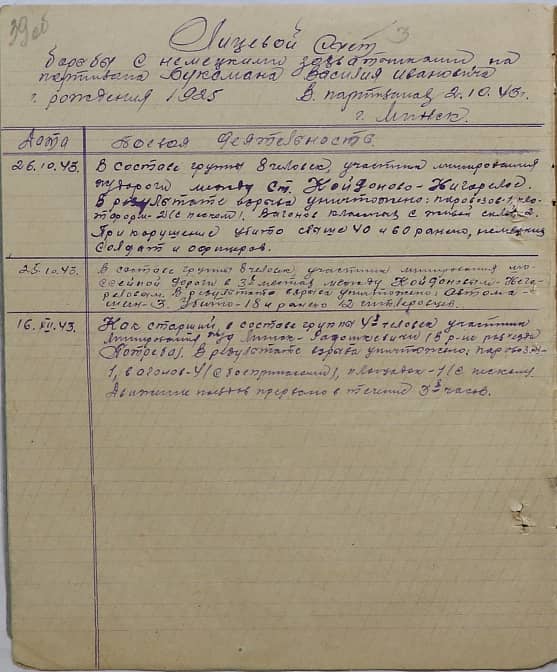 39об
Лицевой счет 3
борьбы с немецкими захватчиками на
партизана Букамана Василия Ивановича
г. рождения 1925 В партизанах 2.10.43г.
г. Минск.
Дата Боевая деятельность.
26.10.43. В составе группы 8 человек, участник минирования
ж/дороги между ст. Койданово-Нигорелое.
В результате взрыва уничтожено: паровозов-1, плат-
форм-2 (с песком), вагонов классных с живой силой-2.
При крушение убито свыше 40 и 60 ранено, немецких
солдат и офицеров.
25.10.43. В составе группы 8 человек, участник минирования шо-
ссейной дороги в 3х местах между Койдановым-Него-
реловым. В результате взрыва уничтожено: автома-
шин-3. Убито-18 и ранено 12 гитлеровцев.
16.XII.43. Как старший, в составе группы 4х человек участник
минирования ж/д Минск-Радошковичи (в р-не разъезда
). В результате взрыва уничтожено: паровозов-
1, вагонов-4 (с боеприпасами), площадок-1 (с песком)
Движение поездов прервано в течение 3х часов.